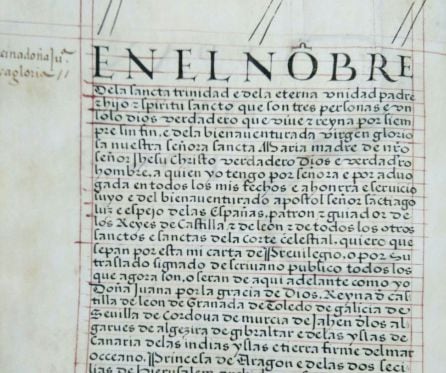 EN EL NÔBRE
Dela sancta trinidad e dela eterna vnidad padre
z hijo z spiritu sancto que son tres personas e vn
solo dios verdadero que viue z reyna por siem
pre sin fin. e dela bienauenturada virgen glorio
sa nuestra señora sancta Maria madre de nr̃o
señor Jhesu christo verdadero Dios e verdadr̃o
hombre, a quien yo tengo por señora e por aduo
gada en todos los mis fechos e a honrra e seruicio
suyo e del bienauenturado apostol señor sactiago
luz e espejo delas Españas, patron z guiador de
los Reyes de Castilla z de leon z de todos los otros
sanctos e sanctas dela corte celestial. quiero que
sepan por esta mi carta de Preuilegio. o por su
traslado signado de scriuano publico todos los
que agora son, o seran de aqui adelante como yo
Doña Juana por la gracia de Dios. Reyna d̃ cas
tilla de leon de Granada de Toledo de galicia de
Seuilla de Cordoua de murcia de Jahen d̃los al
garues de algezira de gibraltar e delas yslas de
Canaria delas indias yslas e tierra firme del mar
occeano. Princesa de Aragon e delas dos seci
lias de Hierusalem